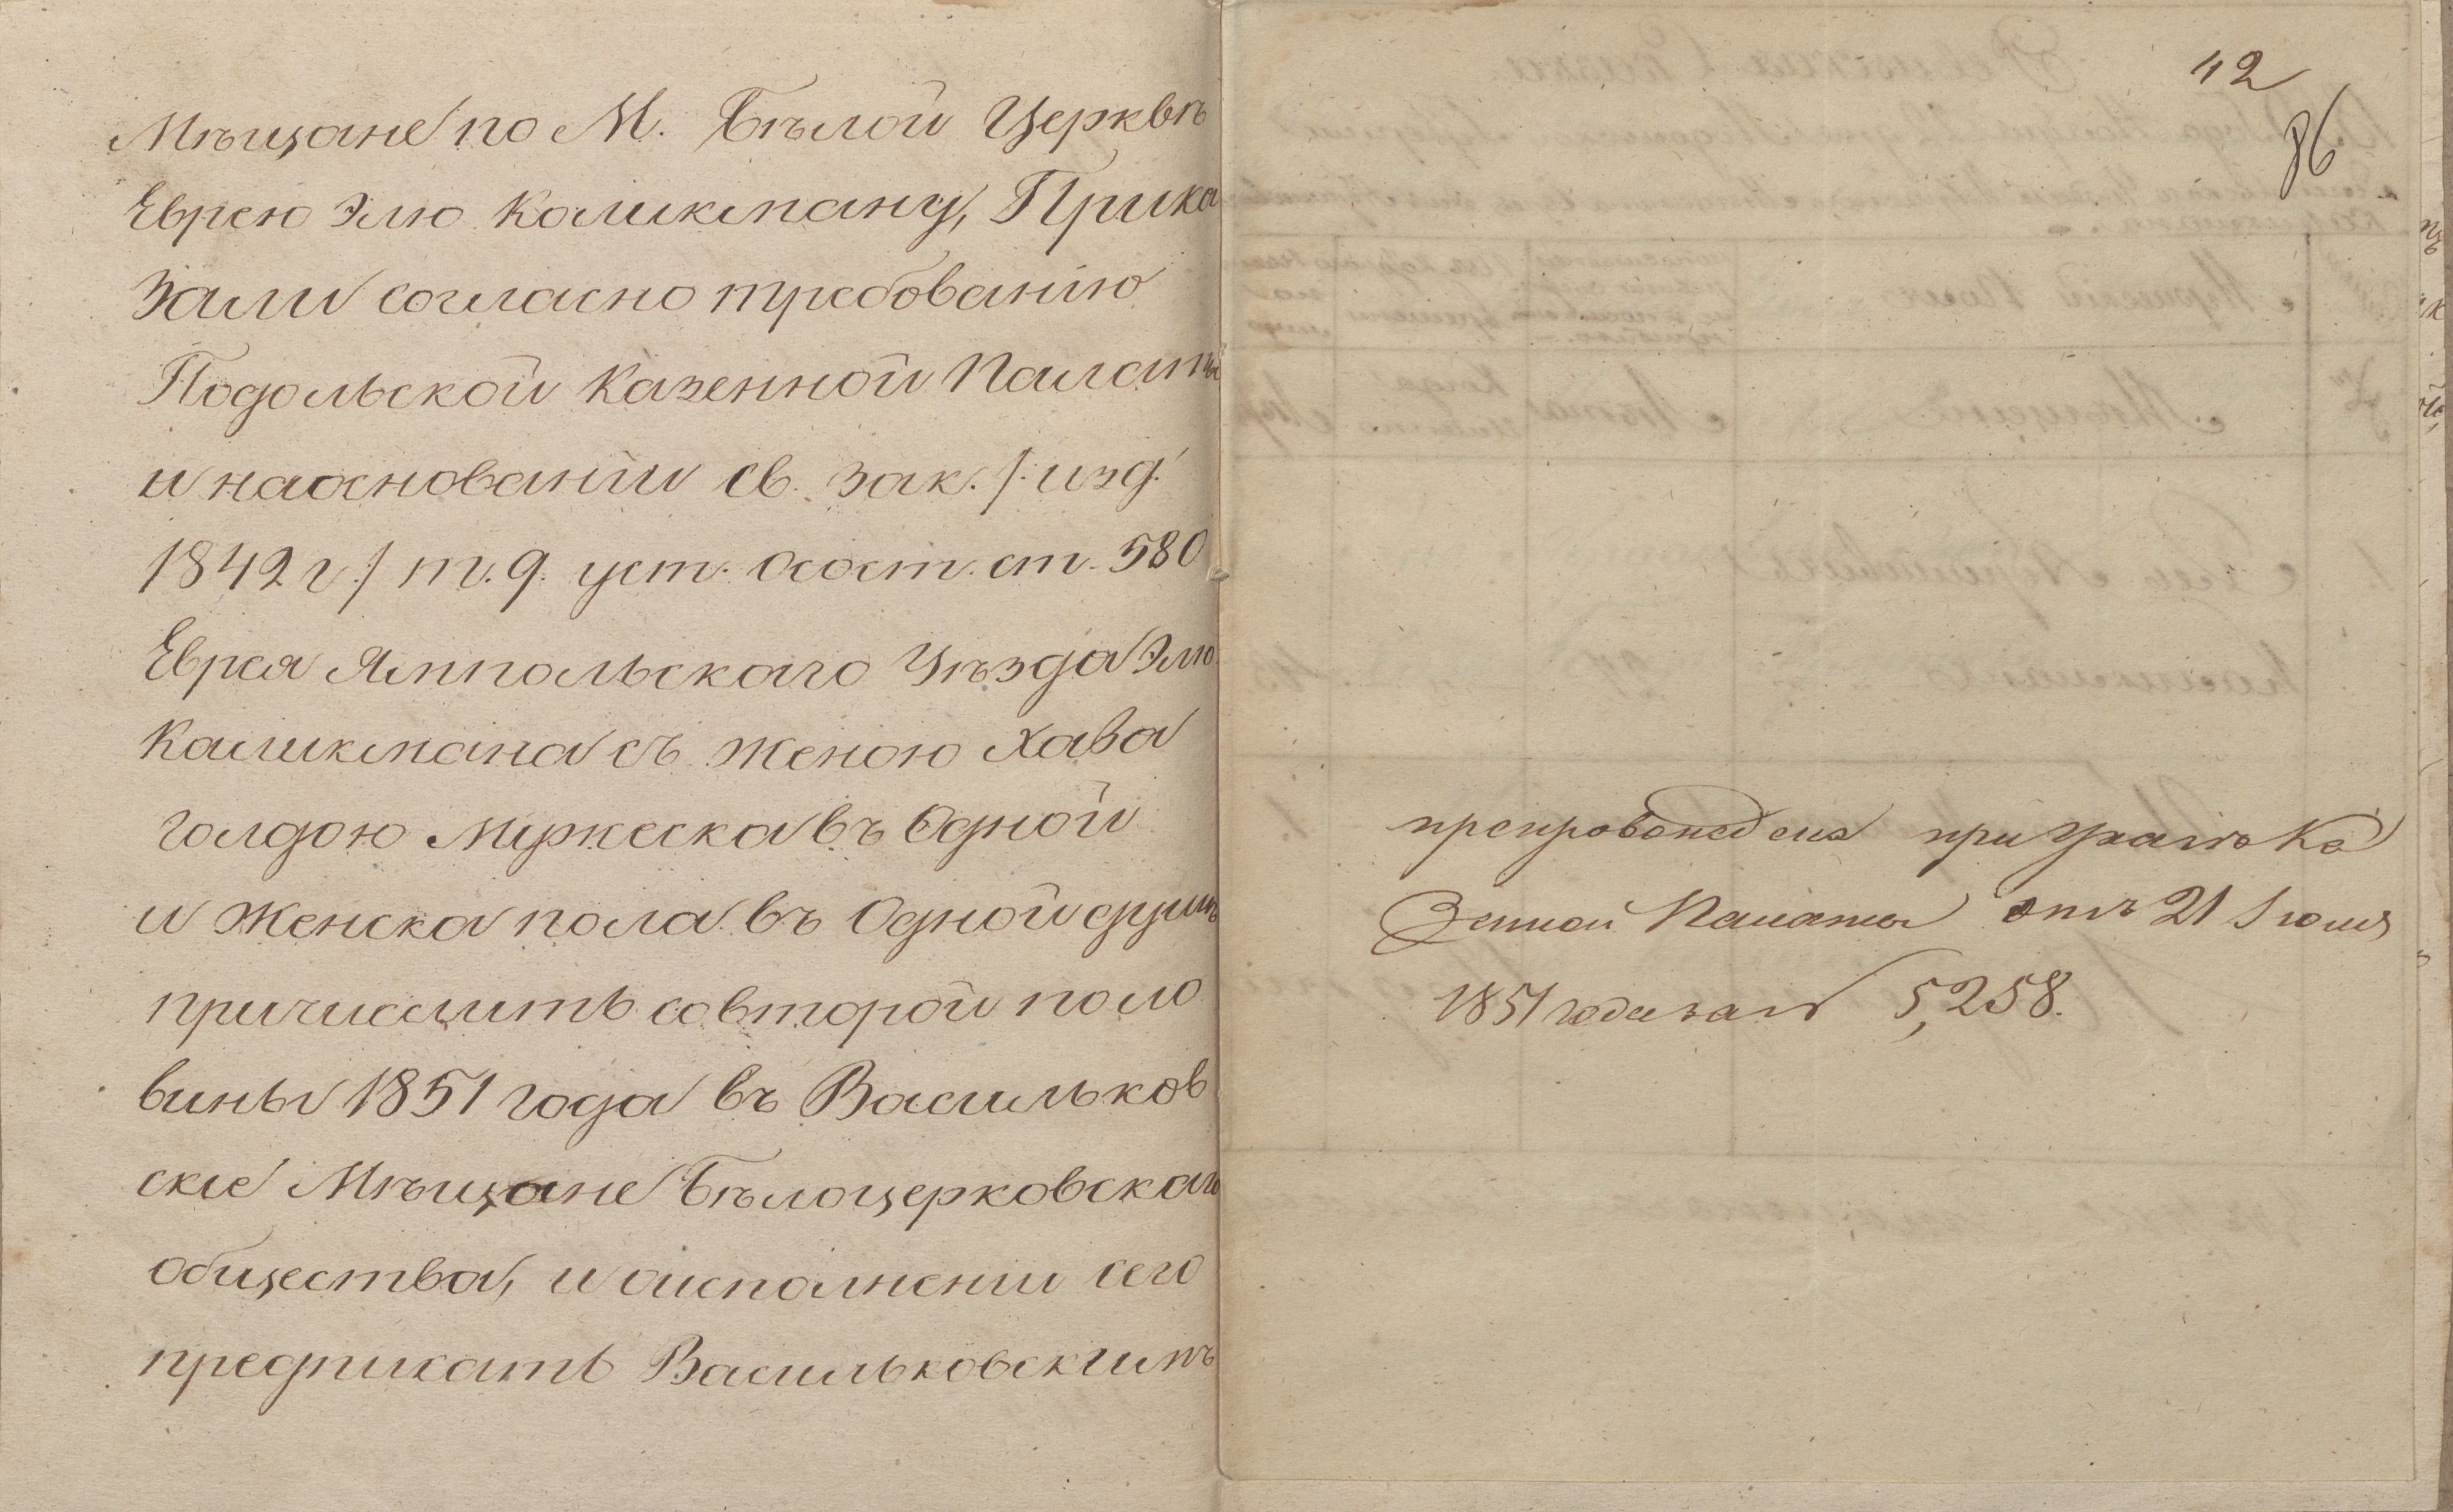 Мѣщане по М. Бѣлой Церквѣ
Еврею Элю Каликману, Прика
зали согласно требованію
Подольской Казенной Палаты
и наоснованіи св. зак. /: изд:
1842 г:/ т. 9. уст. осост. ст. 580
Еврея Ямпольскаго Уѣзда Элю
Каликмана съ женою Хава
Голдою Мужеска въ Одной
и Женска пола въ Одной душѣ
причислить совторой поло
вины 1851 года въ Васильков
скіе Мѣщане Бѣлоцерковскаго
общества, и оисполненіи сего
предписать Васильковскимъ
42
86
препровождена при указѣ Ка
Зенной Палаты отъ 21 Іюля
1851 года за № 5,258.